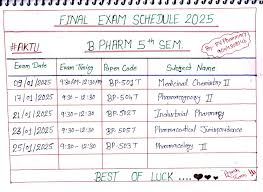 FINAL EXAM SCHEDULE 2025
#AKTU
B PHARM 5th SEM.
Exam Date Exam Timing Paper Code Subject Name
09/01/2025 9:30 AM-12:30 PM BP-501T Medicinal Chemistry II
17/01/2025 9:30-12:30 BP-504T Pharmacognosy II
21/01/2025 9:30-12:30 BP-502T Industrial Pharmacy
25/01/2025 9:30-12:30 BP-505T Pharmaceutical Jurisprudence
25/01/2025 9:30-12:30 BP-503T Pharmacology II
BEST OF LUCK....